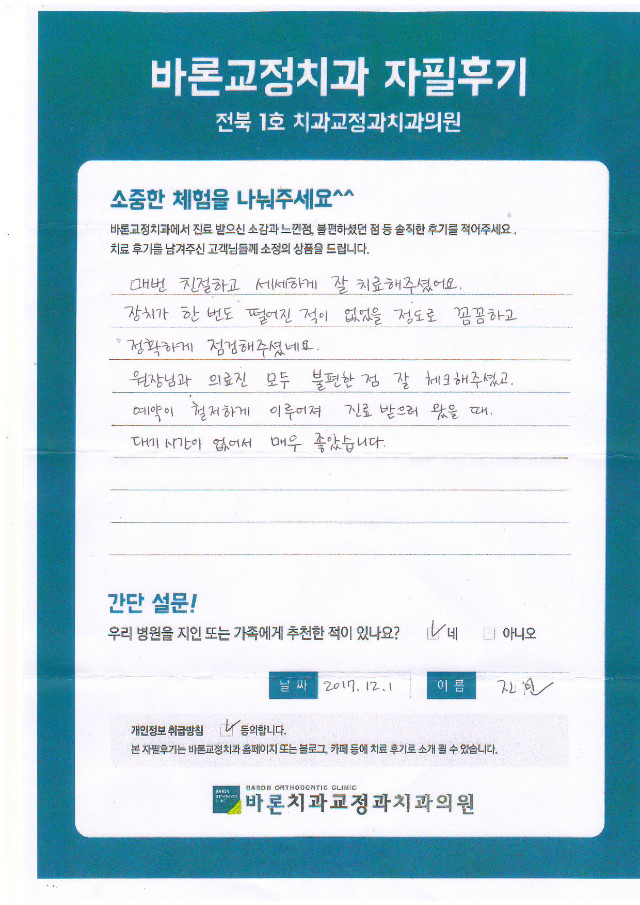 바론교정치과 자필후기
전북 1호 치과교정과치과의원
소중한 체험을 나눠주세요^^
바론교정치과에서 진료 받으신 소감과 느낀점, 불편하셨던 점 등 솔직한 후기를 적어주세요.
치료 후기를 남겨주신 고객님들께 소정의 상품을 드립니다.
매번 친절하고 세세하게 잘 치료해주셨어요.
장치가 한 번도 떨어진 적이 없었을 정도로 꼼꼼하고
정확하게 점검해주셨네요.
원장님과 의료진 모두 불편한 점 잘 체크해주셨고.
예약이 철저하게 이루어져 진료 받으러 왔을 때.
대기시간이 없어서 매우 좋았습니다.
간단 설문!
우리 병원을 지인 또는 가족에게 추천한 적이 있나요? 네 아니오
날짜 2017.12.1 이름
개인정보 취급방침 동의합니다.
본 자필후기는 바론교정치과 홈페이지 또는 블로그, 카페 등에 치료 후기로 소개 될 수 있습니다.
BARON ORTHODONTIC CLINIC
바론치과교정과치과의원